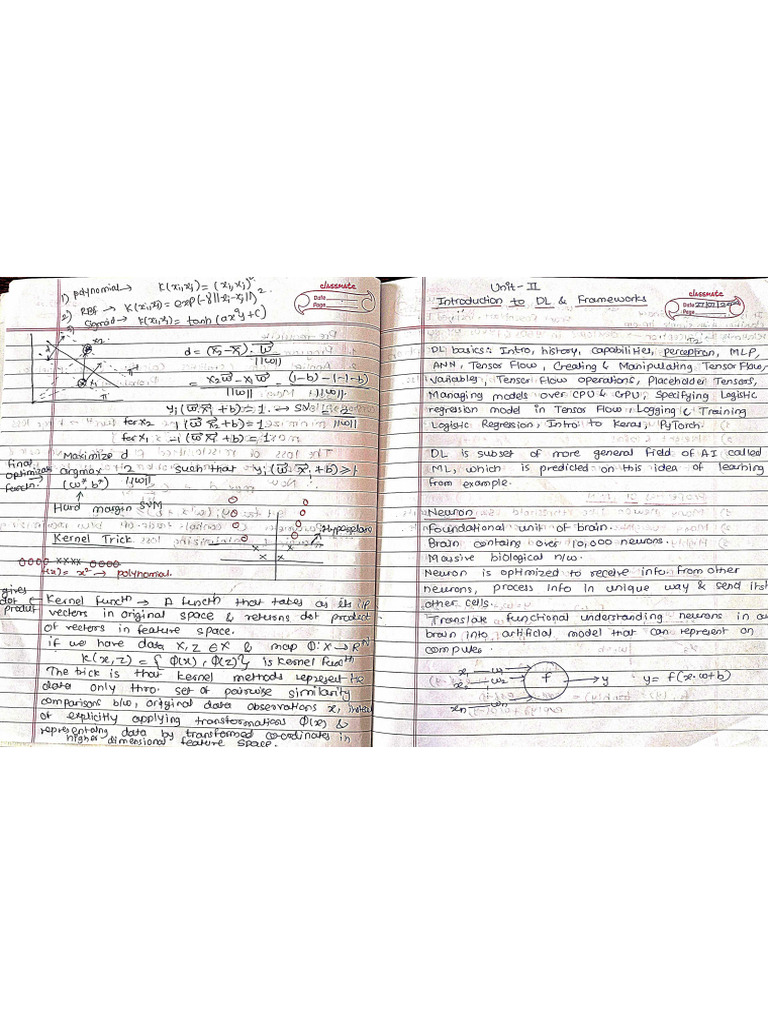 1) Polynomial → K(xi,xj) = (xi,xj)²
2) RBF → K(xi,xj) = exp(-γ||xi-xj||)²
3) Sigmoid → K(xi,xj) = tanh(axᵀy+c)
classmate
Date
Page
x2
x1
π
d = (x̄2-x̄1)·w̄
||w||
= x2w̄ - x1w̄ = (1-b)-(-1-b)
||w|| ||w||
yi(w̄·x̄i+b) = 1 → SV = 2
for x2 1(w̄·x̄i+b) = 1 ||w||
for x1 -1(w̄·x̄i+b) = 1
Maximize d
final
functn →
argmax 2 such that yi(w̄·x̄i+b) ≥ 1
(w*, b*) ||w||
Hard margin SVM
Kernel Trick
Hyperplane
OOOO XXXX OOOO
f(x) = x² → polynomial.
gives
dot
product
Kernel functn → A functn that takes as its i/p
vectors in original space & returns dot product
of vectors in feature space.
if we have data x, z ∈ X & map Φ: X → Rᴺ
K(x,z) = {Φ(x), Φ(z)} is kernel functn
The trick is that kernel methods represent the
data only thro. set of pairwise similarity
comparisons b/w, original data observations x, instead
of explicitly applying transformations Φ(x) &
representing data by transformed co-ordinates in
higher dimensional feature space.
Unit - II
Introduction to DL & Frameworks
classmate
Date
Page
DL basics: Intro, history, capabilities, perceptron, MLP,
ANN, Tensor Flow, Creating & Manipulating Tensor Flow,
variables, Tensor Flow operations, Placeholder Tensors,
Managing models over CPU & GPU, Specifying Logistic
regression model in Tensor Flow, Logging & Training
Logistic Regression, Intro to Keras, PyTorch.
DL is subset of more general field of AI called
ML, which is predicted on this idea of learning
from example.
Neuron
Foundational unit of brain.
Brain contains over 10,000 neurons.
Massive biological n/w.
Neuron is optimized to receive info. from other
neurons, process info in unique way & send its
other cells.
Translate functional understanding neurons in
brain into artificial model that can represent on
computer
x1 w1
x2 w2 f → y y = f(x·w+b)
xn wn